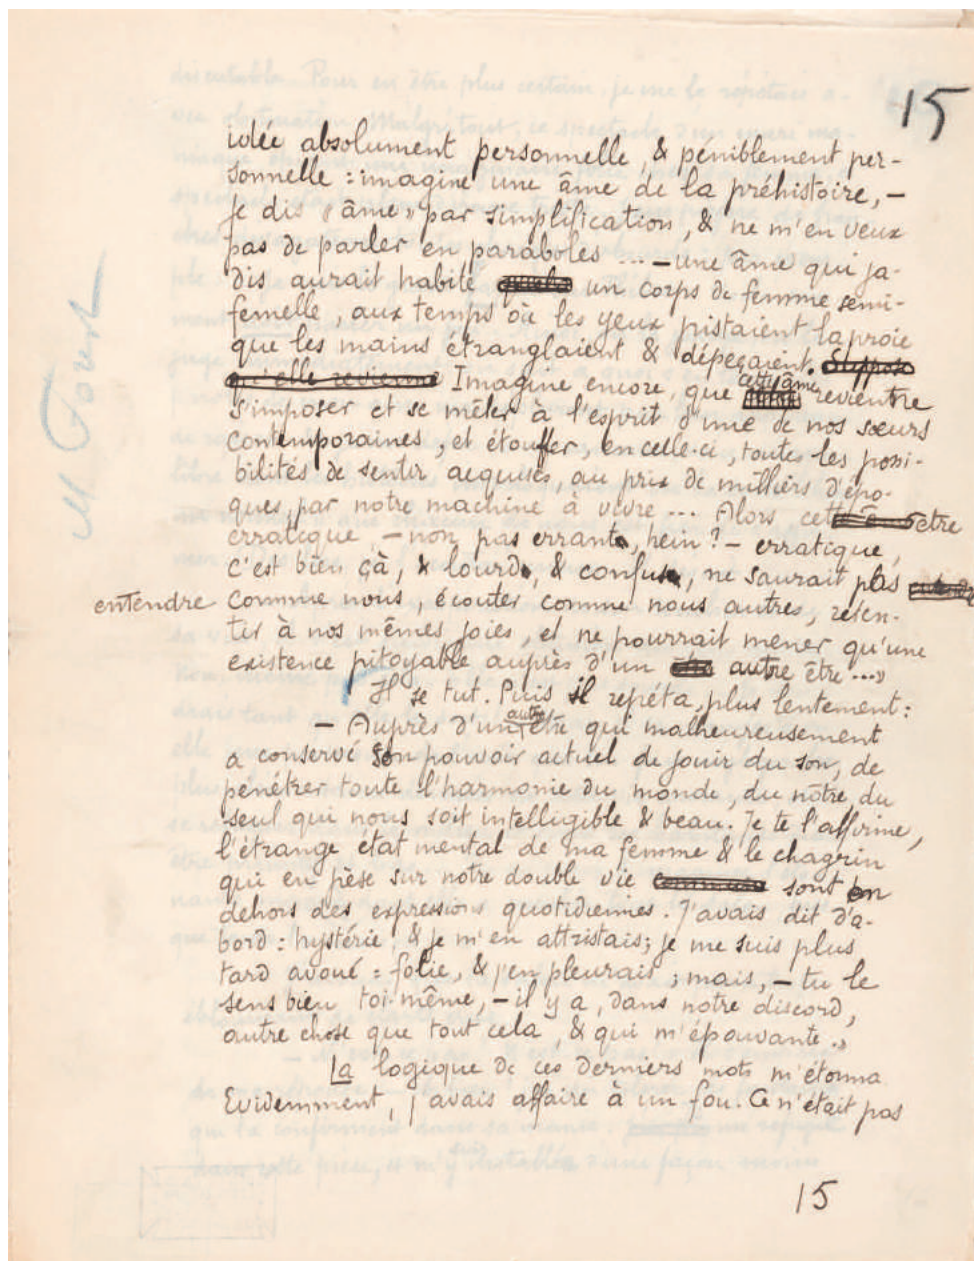 15
idée absolument personnelle, & péniblement per-
sonnelle : imagine une âme de la préhistoire, —
Je dis « âme » par simplification, & ne m'en veux
pas de parler en paraboles ... — une âme qui ja-
dis aurait habité un corps de femme semi-
femelle, aux temps où les yeux pistaient la proie
que les mains étranglaient & dépeçaient. Suppose
qu'elle revienne Imagine encore, que cette âme revienne
s'imposer et se mêler à l'esprit d'une de nos sœurs
contemporaines, et étouffer, en celle-ci, toutes les possi-
bilités de sentir acquises, au prix de milliers d'épo-
ques, par notre machine à vivre ... Alors cet être
erratique, — non pas errant, hein ? — erratique,
c'est bien çà, & lourd, & confus, ne saurait pas
entendre comme nous, écouter comme nous autres, reten-
tir à nos mêmes joies, et ne pourrait mener qu'une
existence pitoyable auprès d'un autre être ... »
Il se tut. Puis il repéta, plus lentement :
— Auprès d'un autre être qui malheureusement
a conservé son pouvoir actuel de jouir du son, de
pénétrer toute l'harmonie du monde, du nôtre, du
seul qui nous soit intelligible & beau. Je te l'affirme,
l'étrange état mental de ma femme & le chagrin
qui en pèse sur notre double vie commune sont en
dehors des expressions quotidiennes. J'avais dit d'a-
bord : hystérie, & je m'en attristais ; je me suis plus
tard avoué : folie, & j'en pleurais ; mais, — tu le
sens bien toi-même, — il y a, dans notre discord,
autre chose que tout cela, & qui m'épouvante. »
La logique de ces derniers mots m'étonna
Evidemment, j'avais affaire à un fou. Ce n'était pas
15